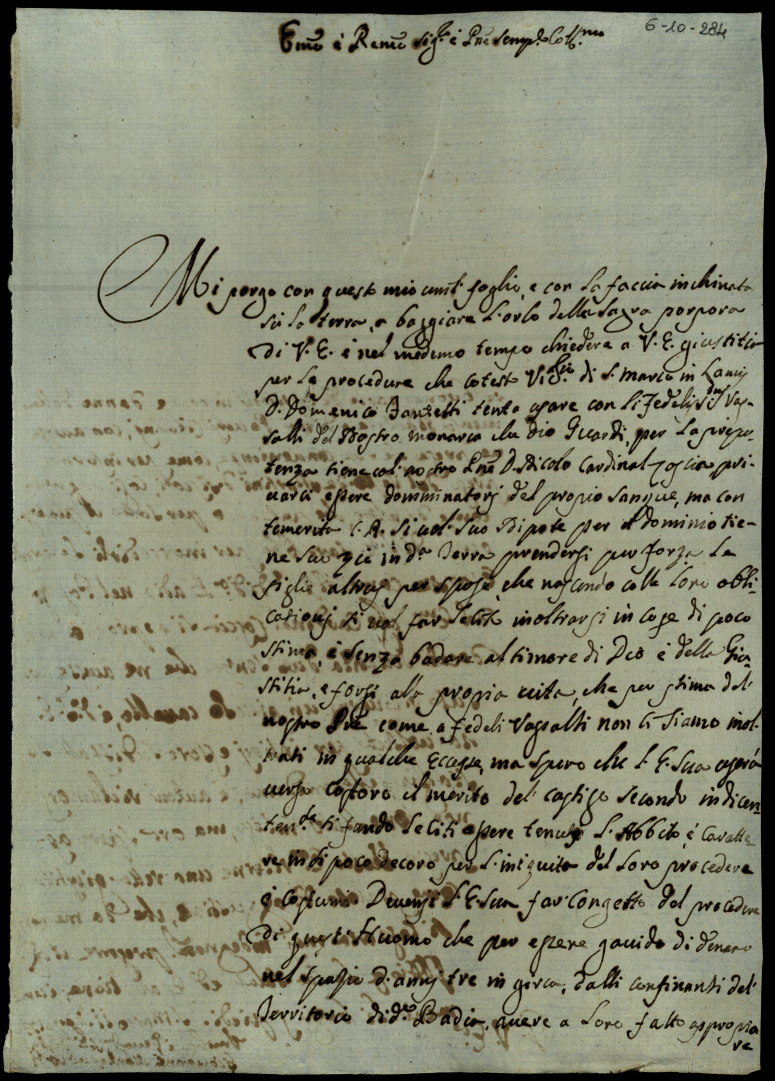 6-10-284
Emo è Remo Sig.r è Pne Semp.e Coll.mo
Mi porgo con questo mio umil foglio, e con la faccia inchinata
sù la terra, a baggiare l'orlo della Sagra porpora
di V. E. è nel medemo tempo chiedere a V. E. giustitia
per la procedura che cotesto di S. Marco in Lamis
D. Domenico tenta usare con li Fedeli Vas-
salli del Nostro monarca che Dio Guardi, per la prepo-
tenza tiene col nostro Pne D. Nicolò Cardinal Coscia pri-
varci essere domminatorj del propio Sangue, ma con
temerità si vol suo Nipote per il dominio tie-
ne suo zio in d.a Terra prendersi per forza le
figlie altruj per spose, che nascendo colle loro obbli-
cationi si vol far lecito inoltrarsi in cose di poco
stima, è senza badare al timore di Dio è della Giu-
stitia, e forsi alla propia vita, che per stima del
nostro Pne come a fedeli vassalli non ci siamo inol-
trati in qualche eccesse, ma spero che l'E. Sua userà
verso costoro il merito del castigo secondo indicen-
tem.te si fando leciti essere tenuti l'Abbito, è Cavalle-
re in di poco decoro per l'iniquità del loro procedere
è costumi Devensi l'E. Sua far Congetto del procedere
di questi Huomo che per essere gavido di denaro
nel spatio d'annj tre in circa, dalli confinanti del
Territorio di d.a Badia, avere a loro fatto appropia
re